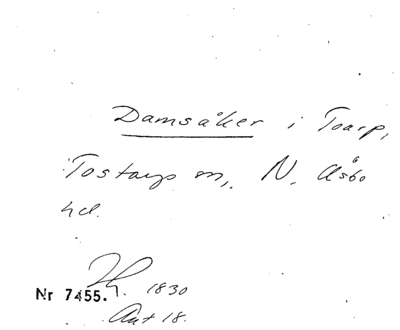 Damsåker i Toarp,
Tostarps sn, N. Åsbo
hd.
Nr 7455. Th. 1830
Akt 18.